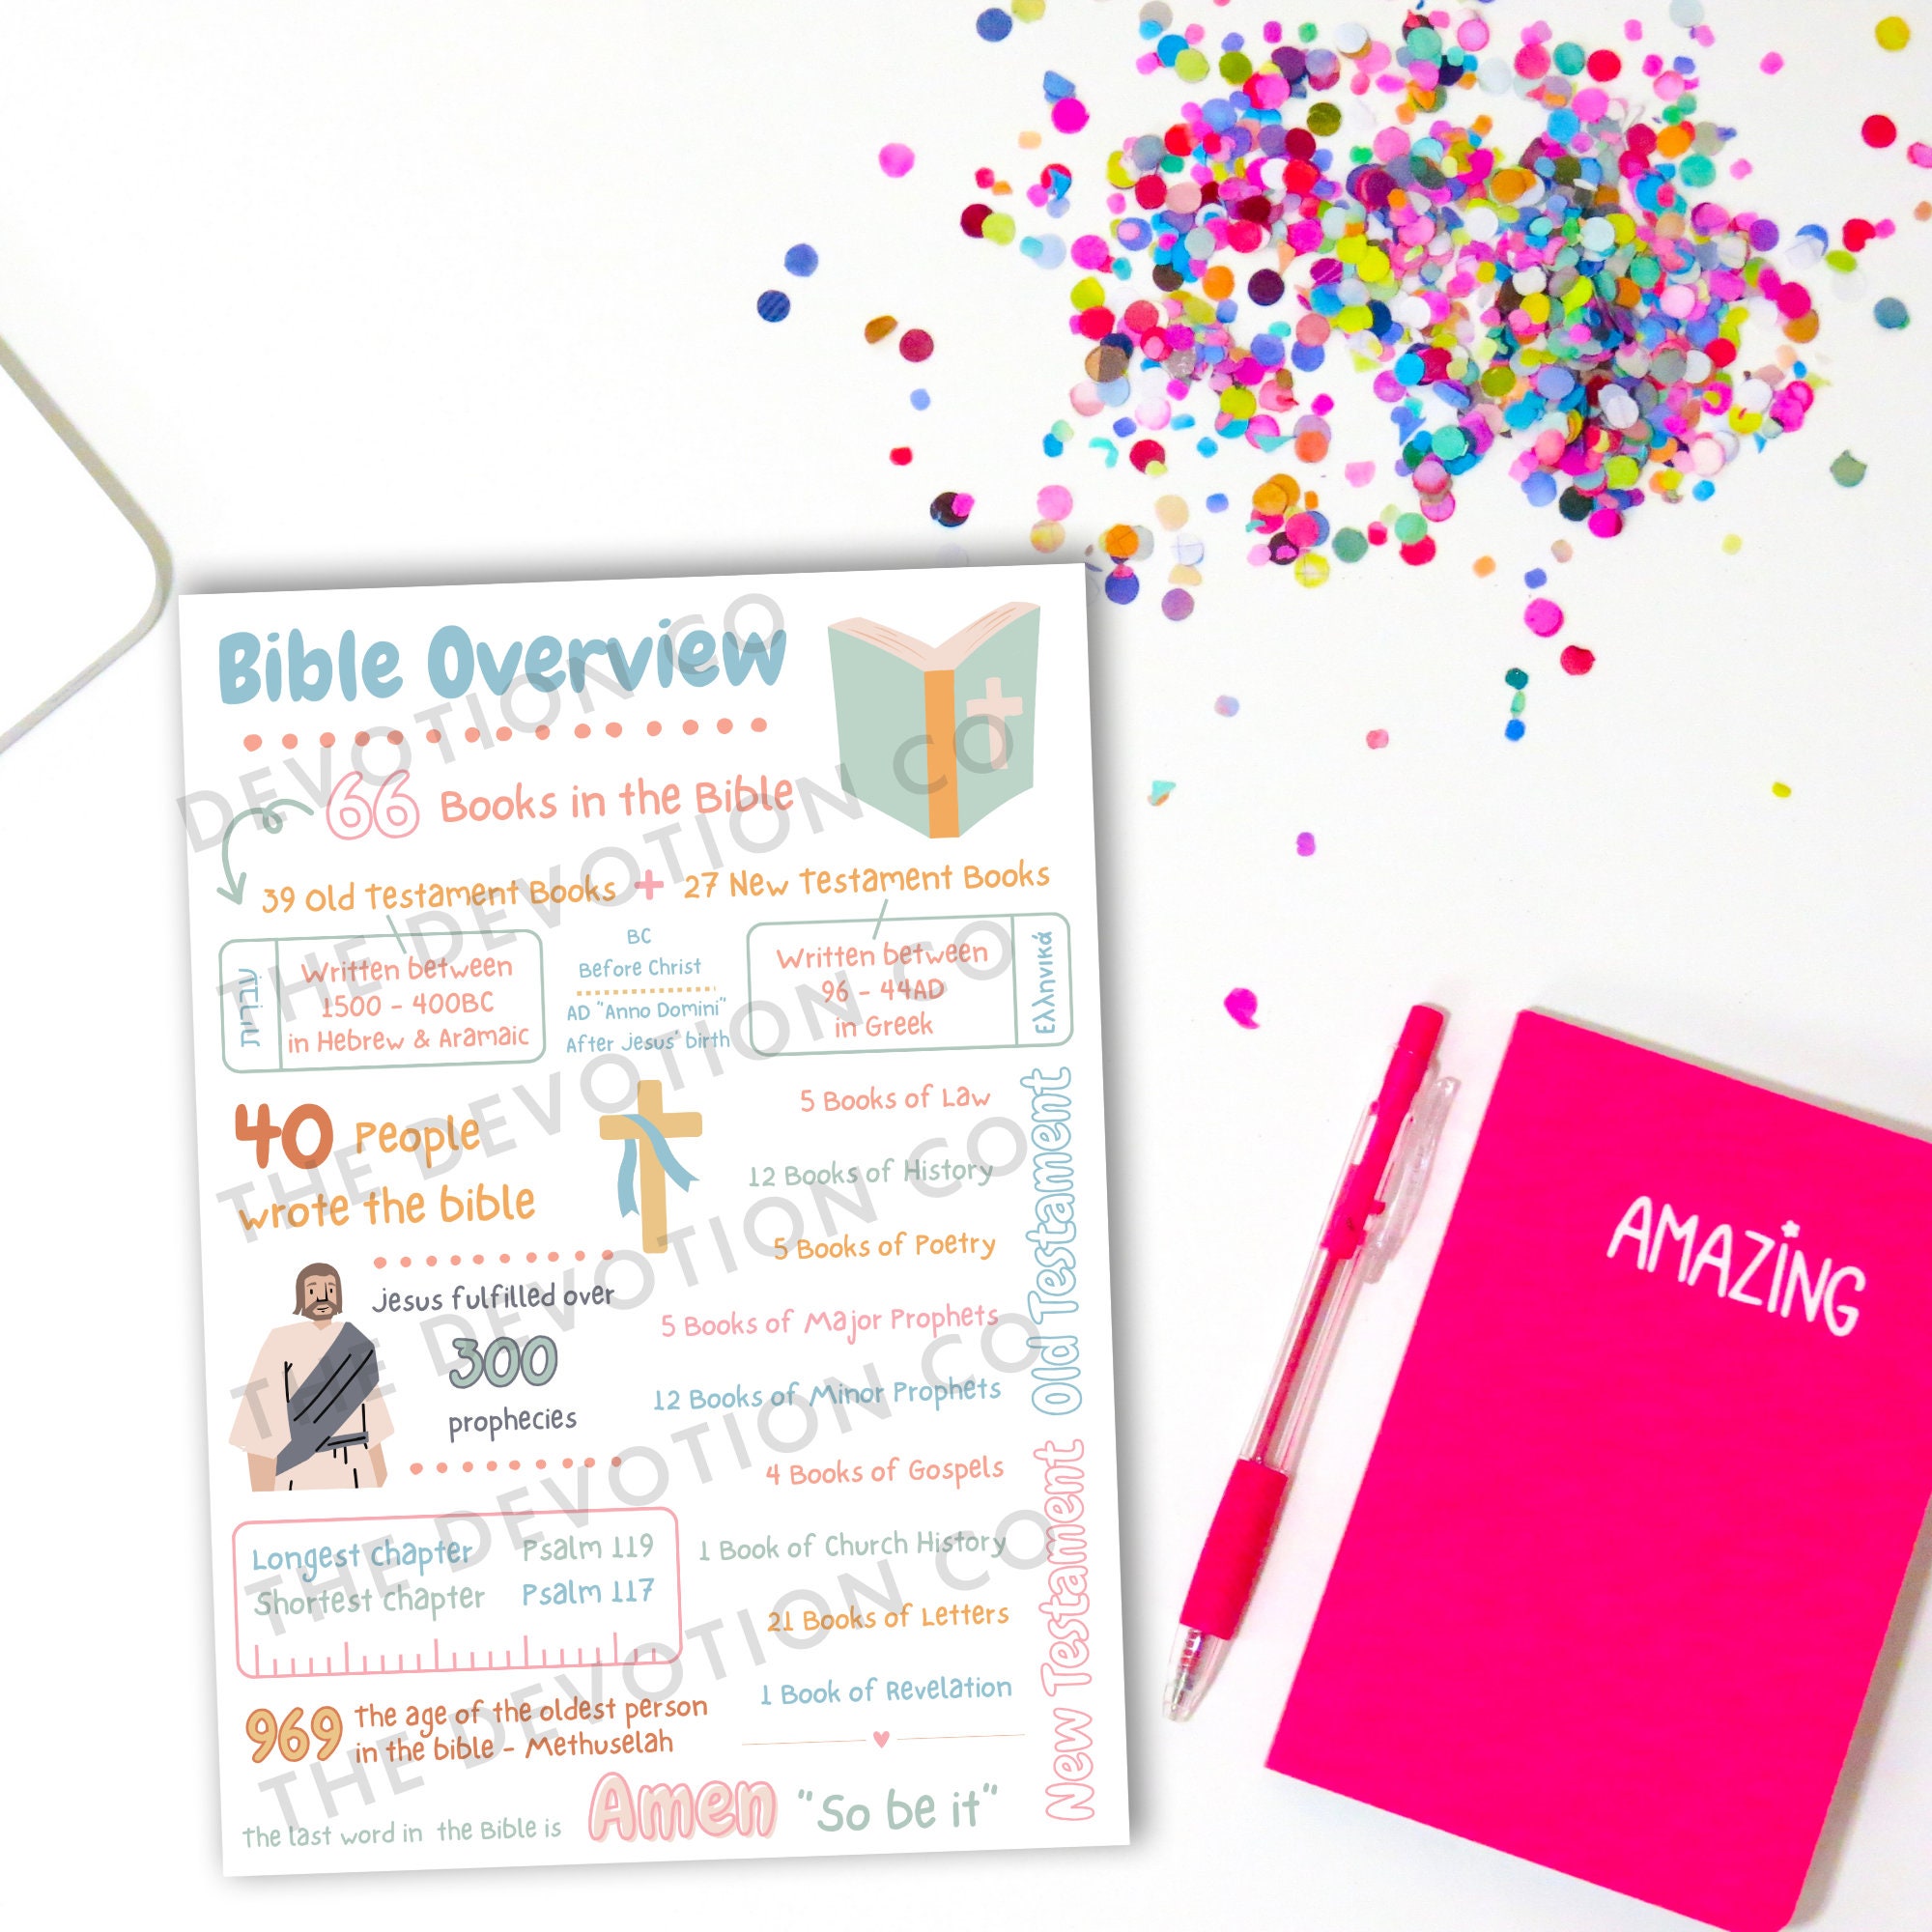 Bible Overview
66 Books in the Bible
39 Old Testament Books + 27 New Testament Books
עברית
Written between
1500 - 400BC
in Hebrew & Aramaic
BC
Before Christ
AD "Anno Domini"
After Jesus' birth
Written between
96 - 44AD
in Greek
Ελληνικά
40 People
wrote the bible
Jesus fulfilled over
300
prophecies
Longest chapter Psalm 119
Shortest chapter Psalm 117
969 the age of the oldest person
in the bible - Methuselah
Old Testament
5 Books of Law
12 Books of History
5 Books of Poetry
5 Books of Major Prophets
12 Books of Minor Prophets
New Testament
4 Books of Gospels
1 Book of Church History
21 Books of Letters
1 Book of Revelation
The last word in the Bible is Amen "So be it"
DEVOTION CO
THE DEVOTION CO
THE DEVOTION CO
THE DEVOTION CO
THE DEVOTION CO
THE DEVOTION CO
THE DEVOTION CO
AMAZING